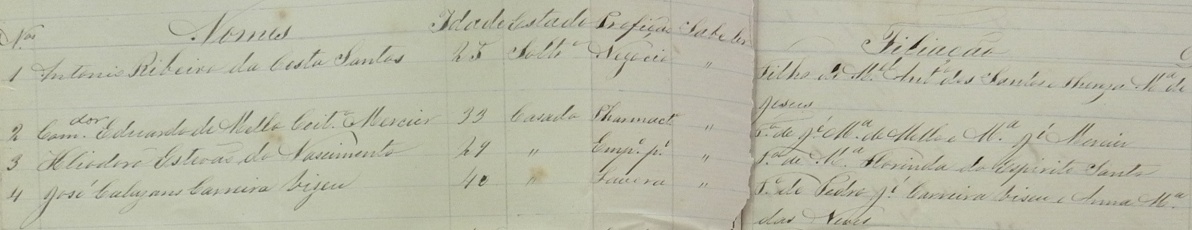 Nos Nomes Idade Estado Profição Sabe ler Filiação
1 Antonio Ribeiro da Costa Santos 25 Soltº Negocio " Filho de Mel Antº dos Santos e Mª de
Jesus
2 Comdor Eduardo de Mello Coitº Mercier 33 Casado Pharmact " Fº de Jé Mª de Mello e Mª Jé Mercier
3 Heliodoro Estevão do Nascimento 29 " Empº pº " Fº de Mª Florinda do Espirito Santo
4 José Calazans Carreira Vizeu 42 " Lavora " Fº de Pedro Jé Carreira Viseu e Anna Mª
das Neves